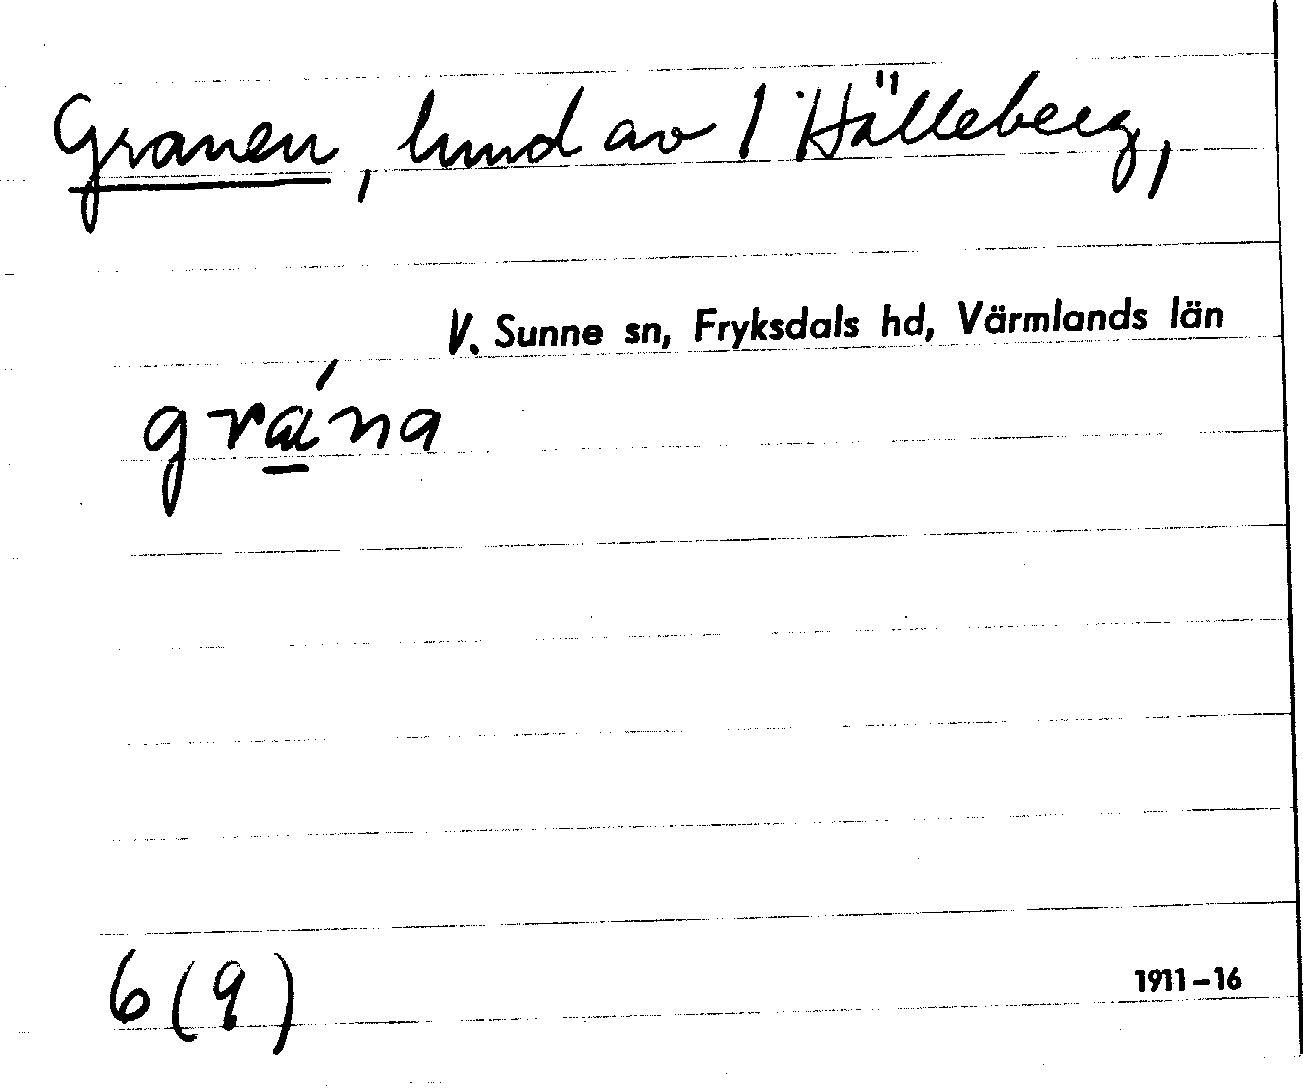 Granen, lund av 1 Hälleberg,
V. Sunne sn, Fryksdals hd, Värmlands län
grána
6 (9)
1911-16